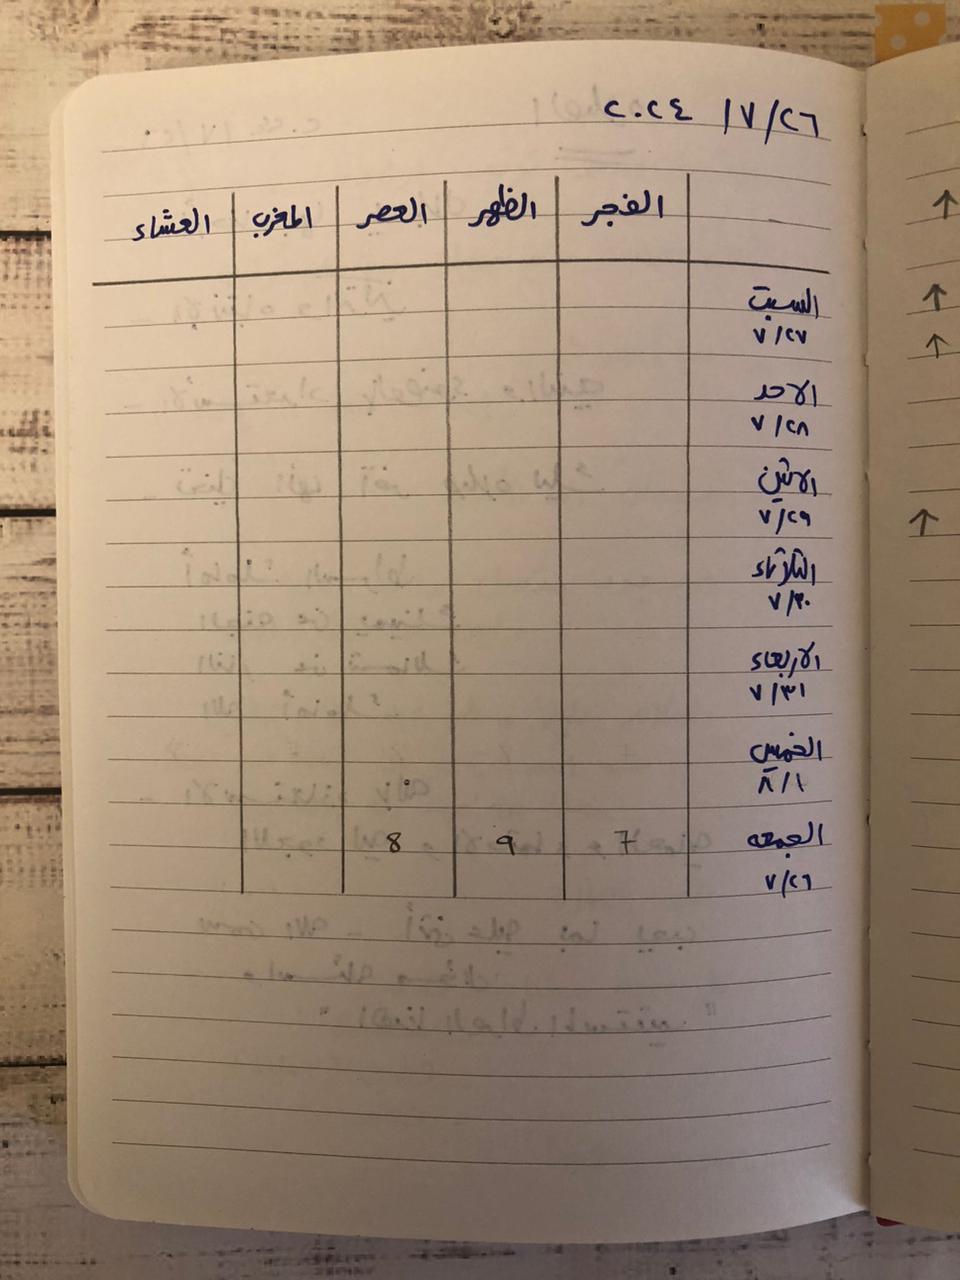 ٢٠٢٤ /٧/٢٦
الفجر الظهر العصر المغرب العشاء
السبت
٧/٢٧
الاحد
٧/٢٨
الاثنين
٧/٢٩
الثلاثاء
٧/٣٠
الاربعاء
٧/٣١
الخميس
٨/١
الجمعه 7 9 8
٧/٢٦